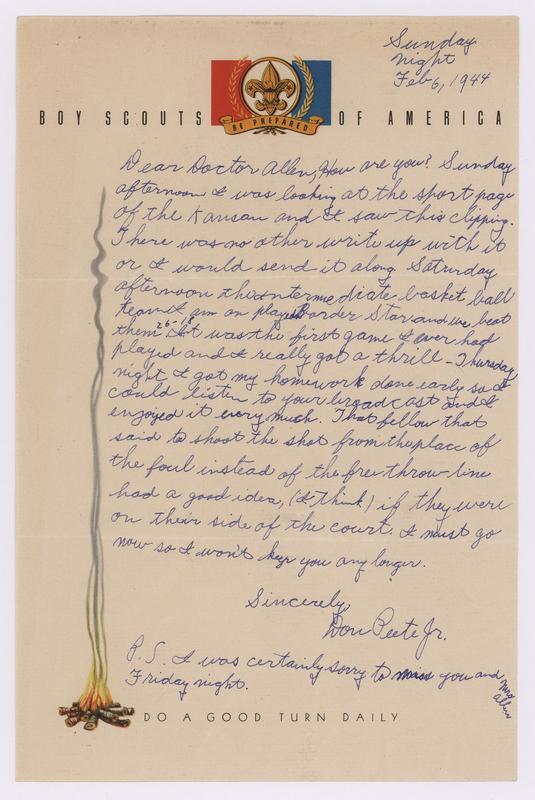 Sunday
night
Feb 6, 1944
BOY SCOUTS OF AMERICA
BE PREPARED
Dear Doctor Allen, How are you? Sunday
afternoon I was looking at the sport page
of the Kansan and I saw this clipping.
There was no other write up with it
or I would send it along. Saturday
afternoon the intermediate basket ball
team I am on played Border Star and we beat
them 26-18. It was the first game I ever had
played and I really got a thrill - Thursday
night I got my homework done early so I
could listen to your broadcast and I
enjoyed it every much. That fellow that
said to shoot the shot from the place of
the foul instead of the free-throw-line
had a good idea, (I think) if they were
on their side of the court. I must go
now so I won't keep you any longer.
Sincerely,
Don Peete Jr.
P.S. I was certainly sorry to miss you and Mrs Allen
Friday night.
DO A GOOD TURN DAILY